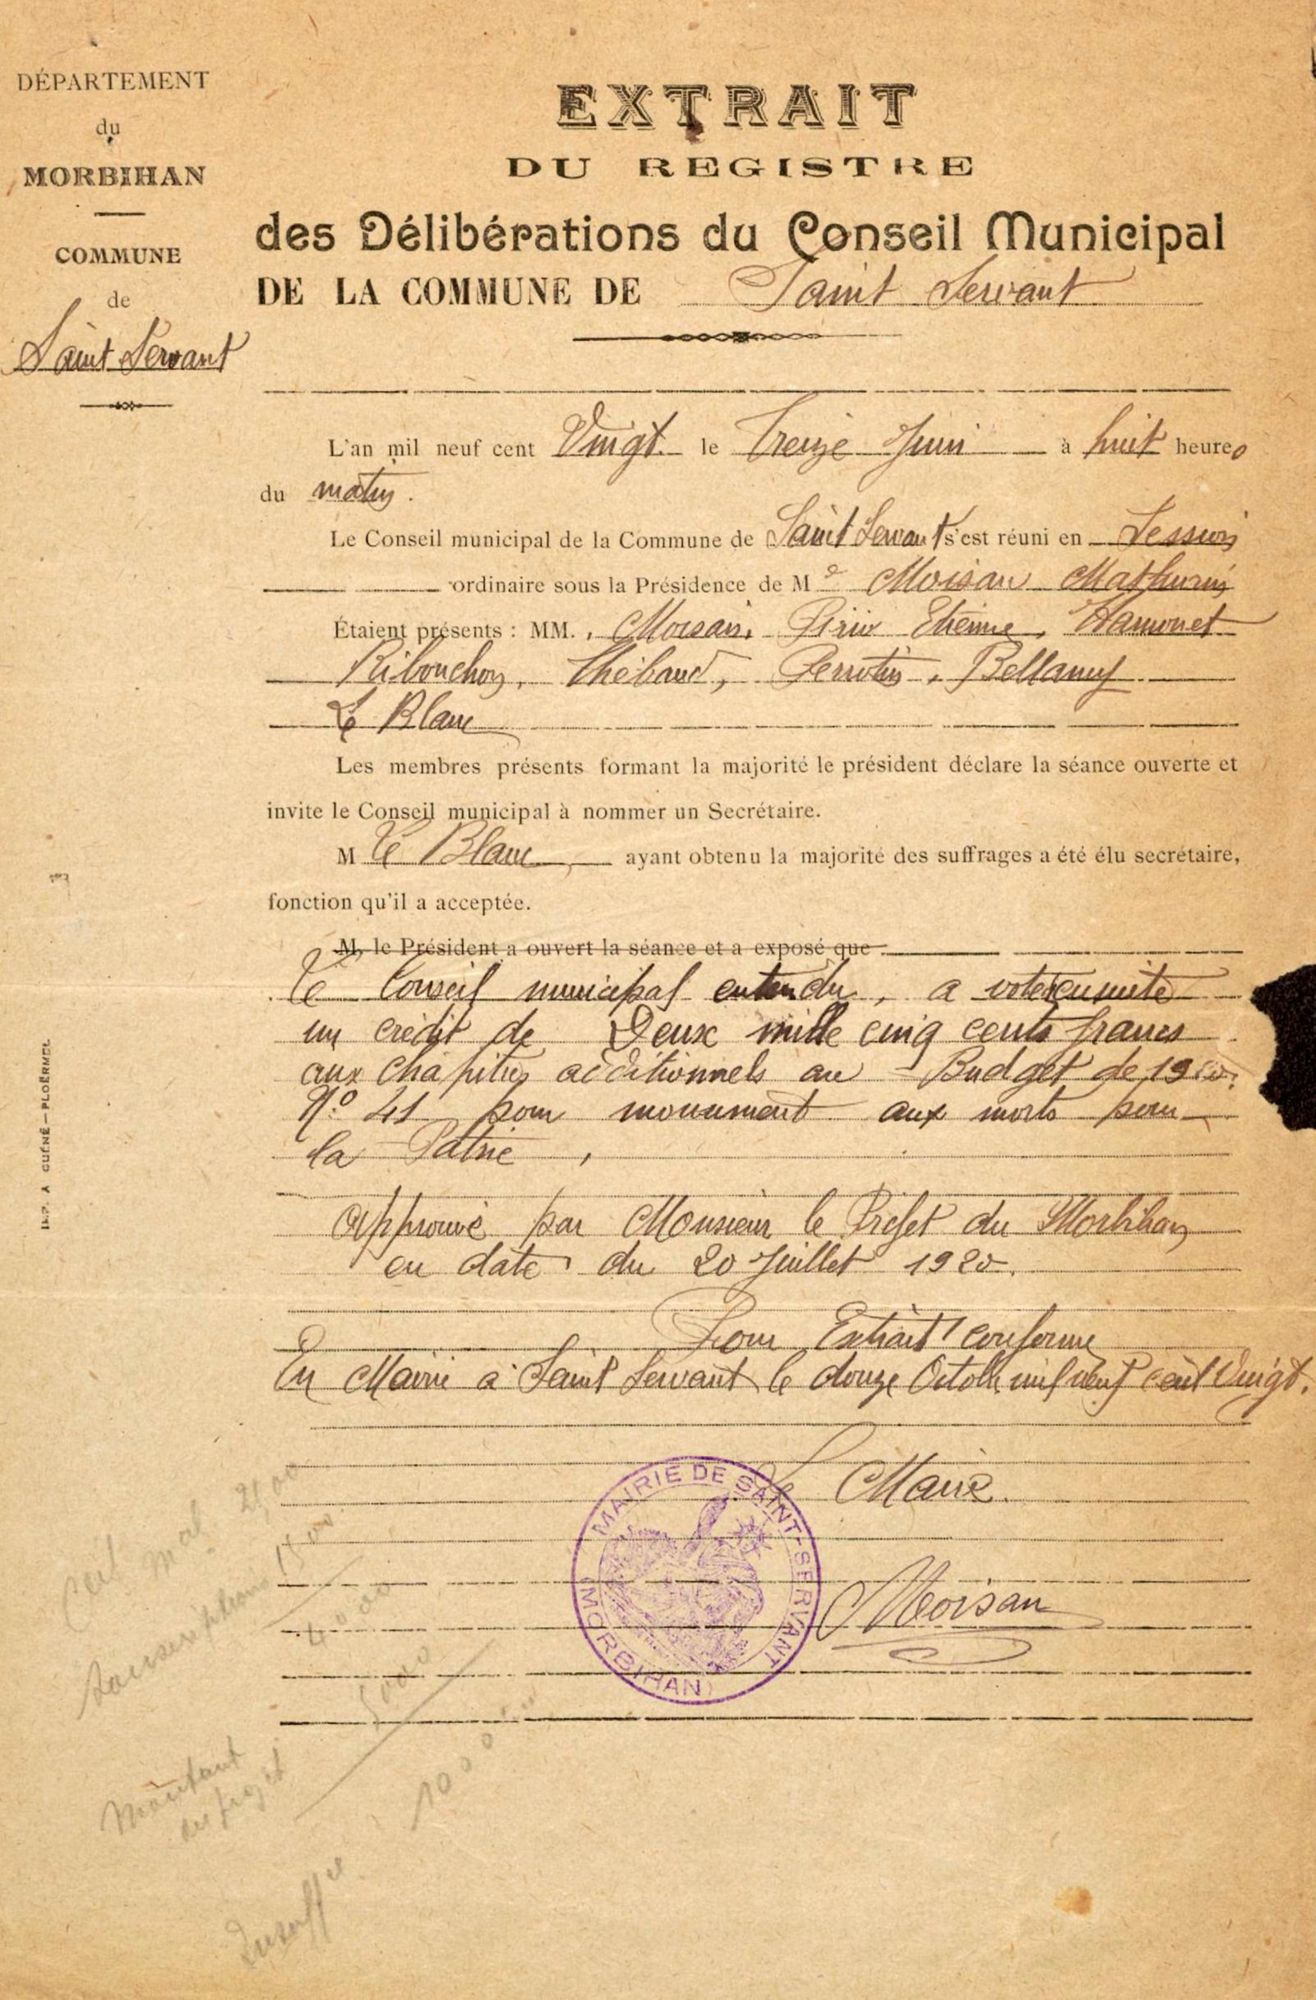 DÉPARTEMENT
du
MORBIHAN
COMMUNE
de
Saint Servant
EXTRAIT
DU REGISTRE
des Délibérations du Conseil Municipal
DE LA COMMUNE DE Saint Servant
L'an mil neuf cent Vingt le Treize Juin à huit heures
du matin.
Le Conseil municipal de la Commune de Saint Servant s'est réuni en Session
ordinaire sous la Présidence de M Moisan Mathurin
Étaient présents : MM. Moisan, Etienne, Hamonet
Ribouchon, Thébaud, Perrotin, Bellamy
Le Blanc
Les membres présents formant la majorité le président déclare la séance ouverte et
invite le Conseil municipal à nommer un Secrétaire.
M Le Blanc ayant obtenu la majorité des suffrages a été élu secrétaire,
fonction qu'il a acceptée.
M. le Président a ouvert la séance et a exposé que
Le Conseil municipal entendu, a voté
un crédit de Deux mille cinq cents francs
aux chapitres additionnels au Budget de 1920.
N° 41 pour monument aux morts pour
la Patrie,
Approuvé par Monsieur le Préfet du Morbihan
en date du 20 Juillet 1920.
Pour Extrait conforme
En Mairie à Saint Servant le douze Octobre mil neuf cent Vingt.
Le Maire.
Moisan
MAIRIE DE SAINT-SERVANT
(MORBIHAN)
IMP. A GUÉNÉ - PLOËRMEL
souscriptions 1500
4000
5000
Montant
du projet
10000